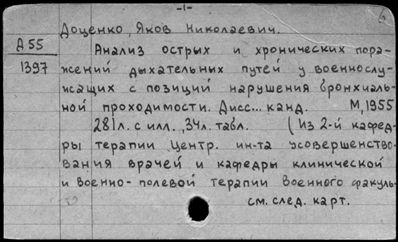 -1-
Доценко, Яков Николаевич.
А 55
1397
Анализ острых и хронических пора-
жений дыхательных путей у военнослу-
жащих с позиций нарушения бронхиаль-
ной проходимости. Дисс... канд. М, 1955
281л. с илл., 34л. табл. (Из 2-й кафед-
ры терапии Центр. ин-та усовершенство-
вания врачей и кафедры клинической
и военно-полевой терапии Военного факуль-
см. след. карт.